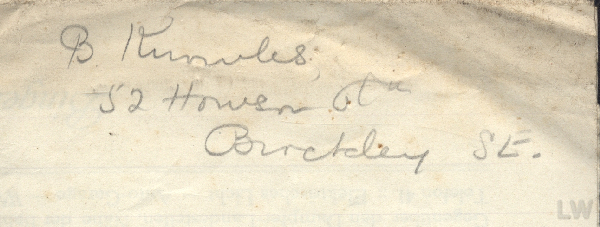 B. Knowles,
52 Howson Rd
Brockley SE.
LW